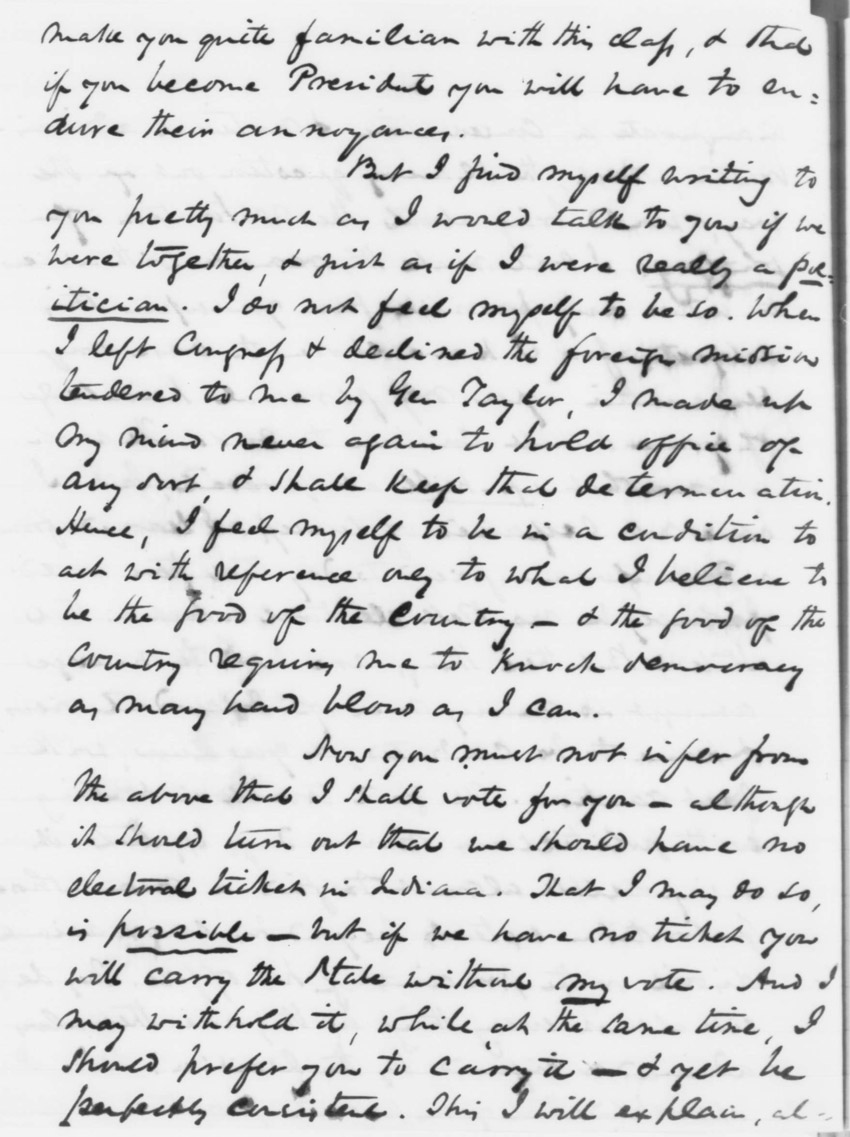 make you quite familiar with this class, & that
if you become President you will have to en=
dure their annoyances.
But I find myself writing to
you pretty much as I would talk to you if we
were together, & just as if I were really a pol=
itician. I do not feel myself to be so. When
I left Congress & declined the foreign mission
tendered to me by Gen Taylor, I made up
my mind never again to hold office of
any sort, & shall keep that determination.
Hence, I feel myself to be in a condition to
act with reference only to what I believe to
be the good of the country — & the good of the
Country requires me to knock democracy
as many hard blows as I can.
Now you must not infer from
the above that I shall vote for you — although
it should turn out that we should have no
electoral ticket in Indiana. That I may do so,
is possible — but if we have no ticket you
will carry the State without my vote. And I
may withhold it, while at the same time, I
should prefer you to carry it — & yet be
perfectly consistent. This I will explain, al-